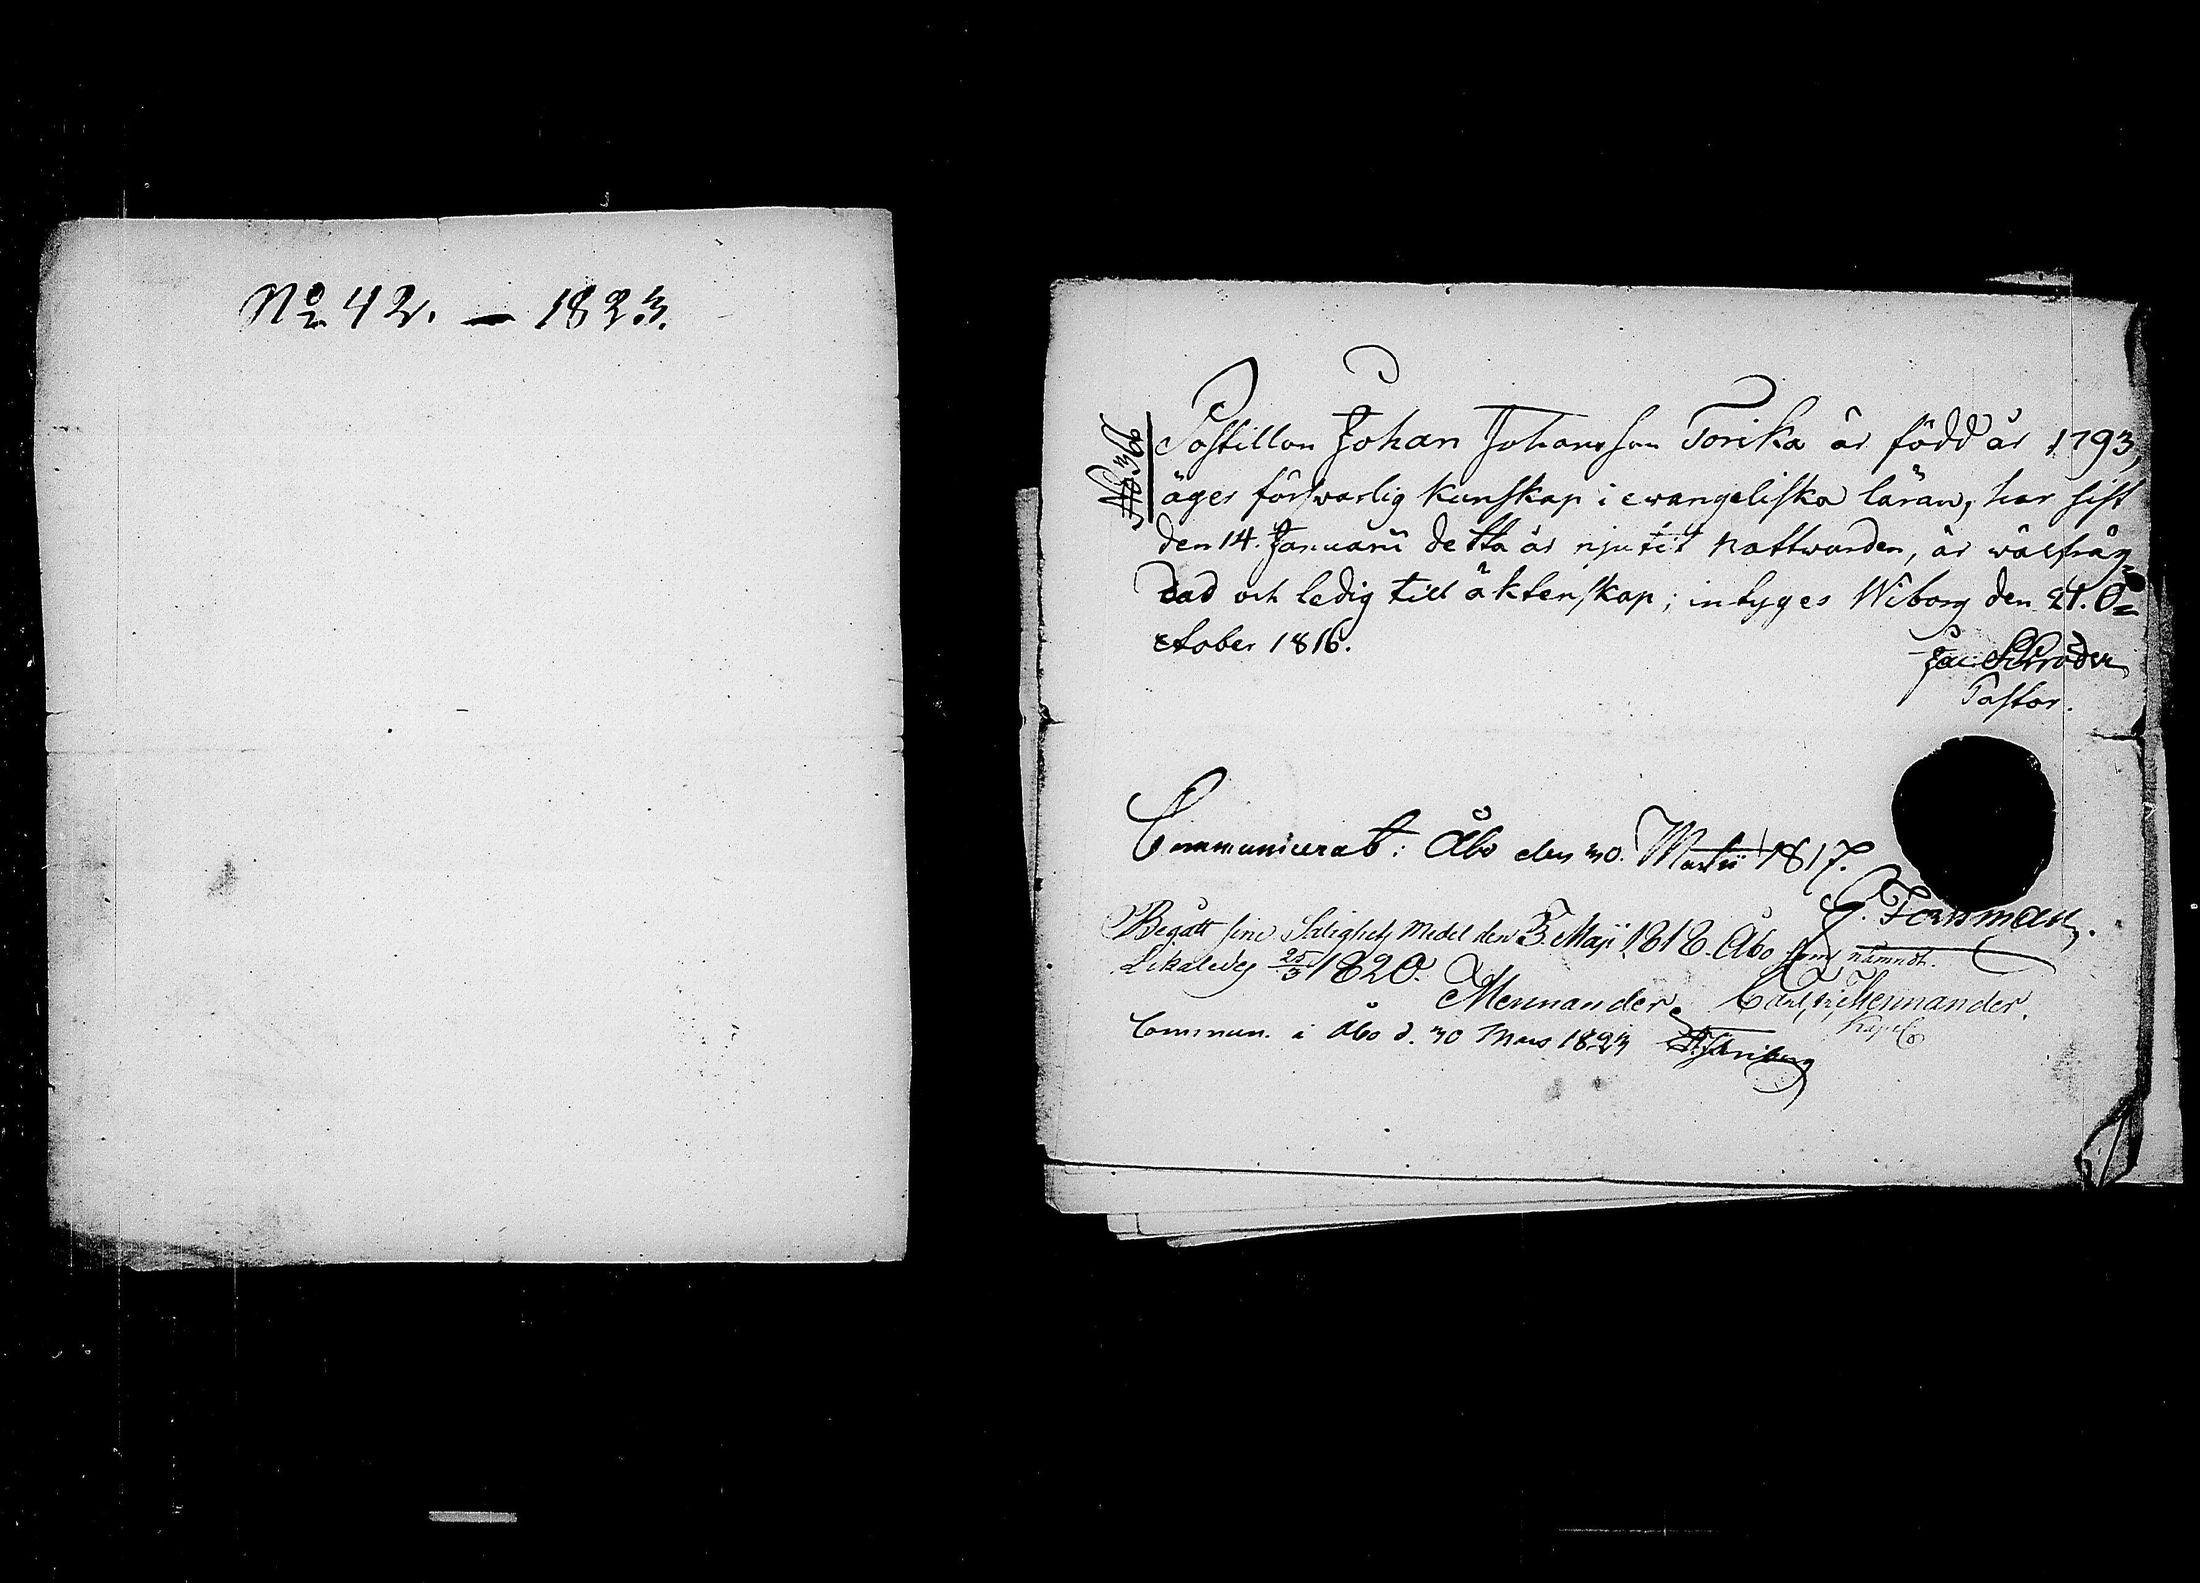 No 42. — 1823.
No 366
Postillon Johan Johansson Torika är född år 1793,
äger förswarlig kunskap i ewangeliska läran, har sist
den 14. Januarii detta år njutit nattwarden, är wälfräg=
dad och ledig till äktenskap; intyges Wiborg den 21. O=
ctober 1816.
Jac. Schröder
Pastor.
Communicerat: Åbo den 30. Martii 1817.
G. Forsman.
Begått sine Salighets Medel den 3. Maji 1818. Åbo som nämndt.
Likaledes 25/3 1820.
Mennander. Carl Fr. Mennander.
Commun. i Åbo d. 30 Mars 1823